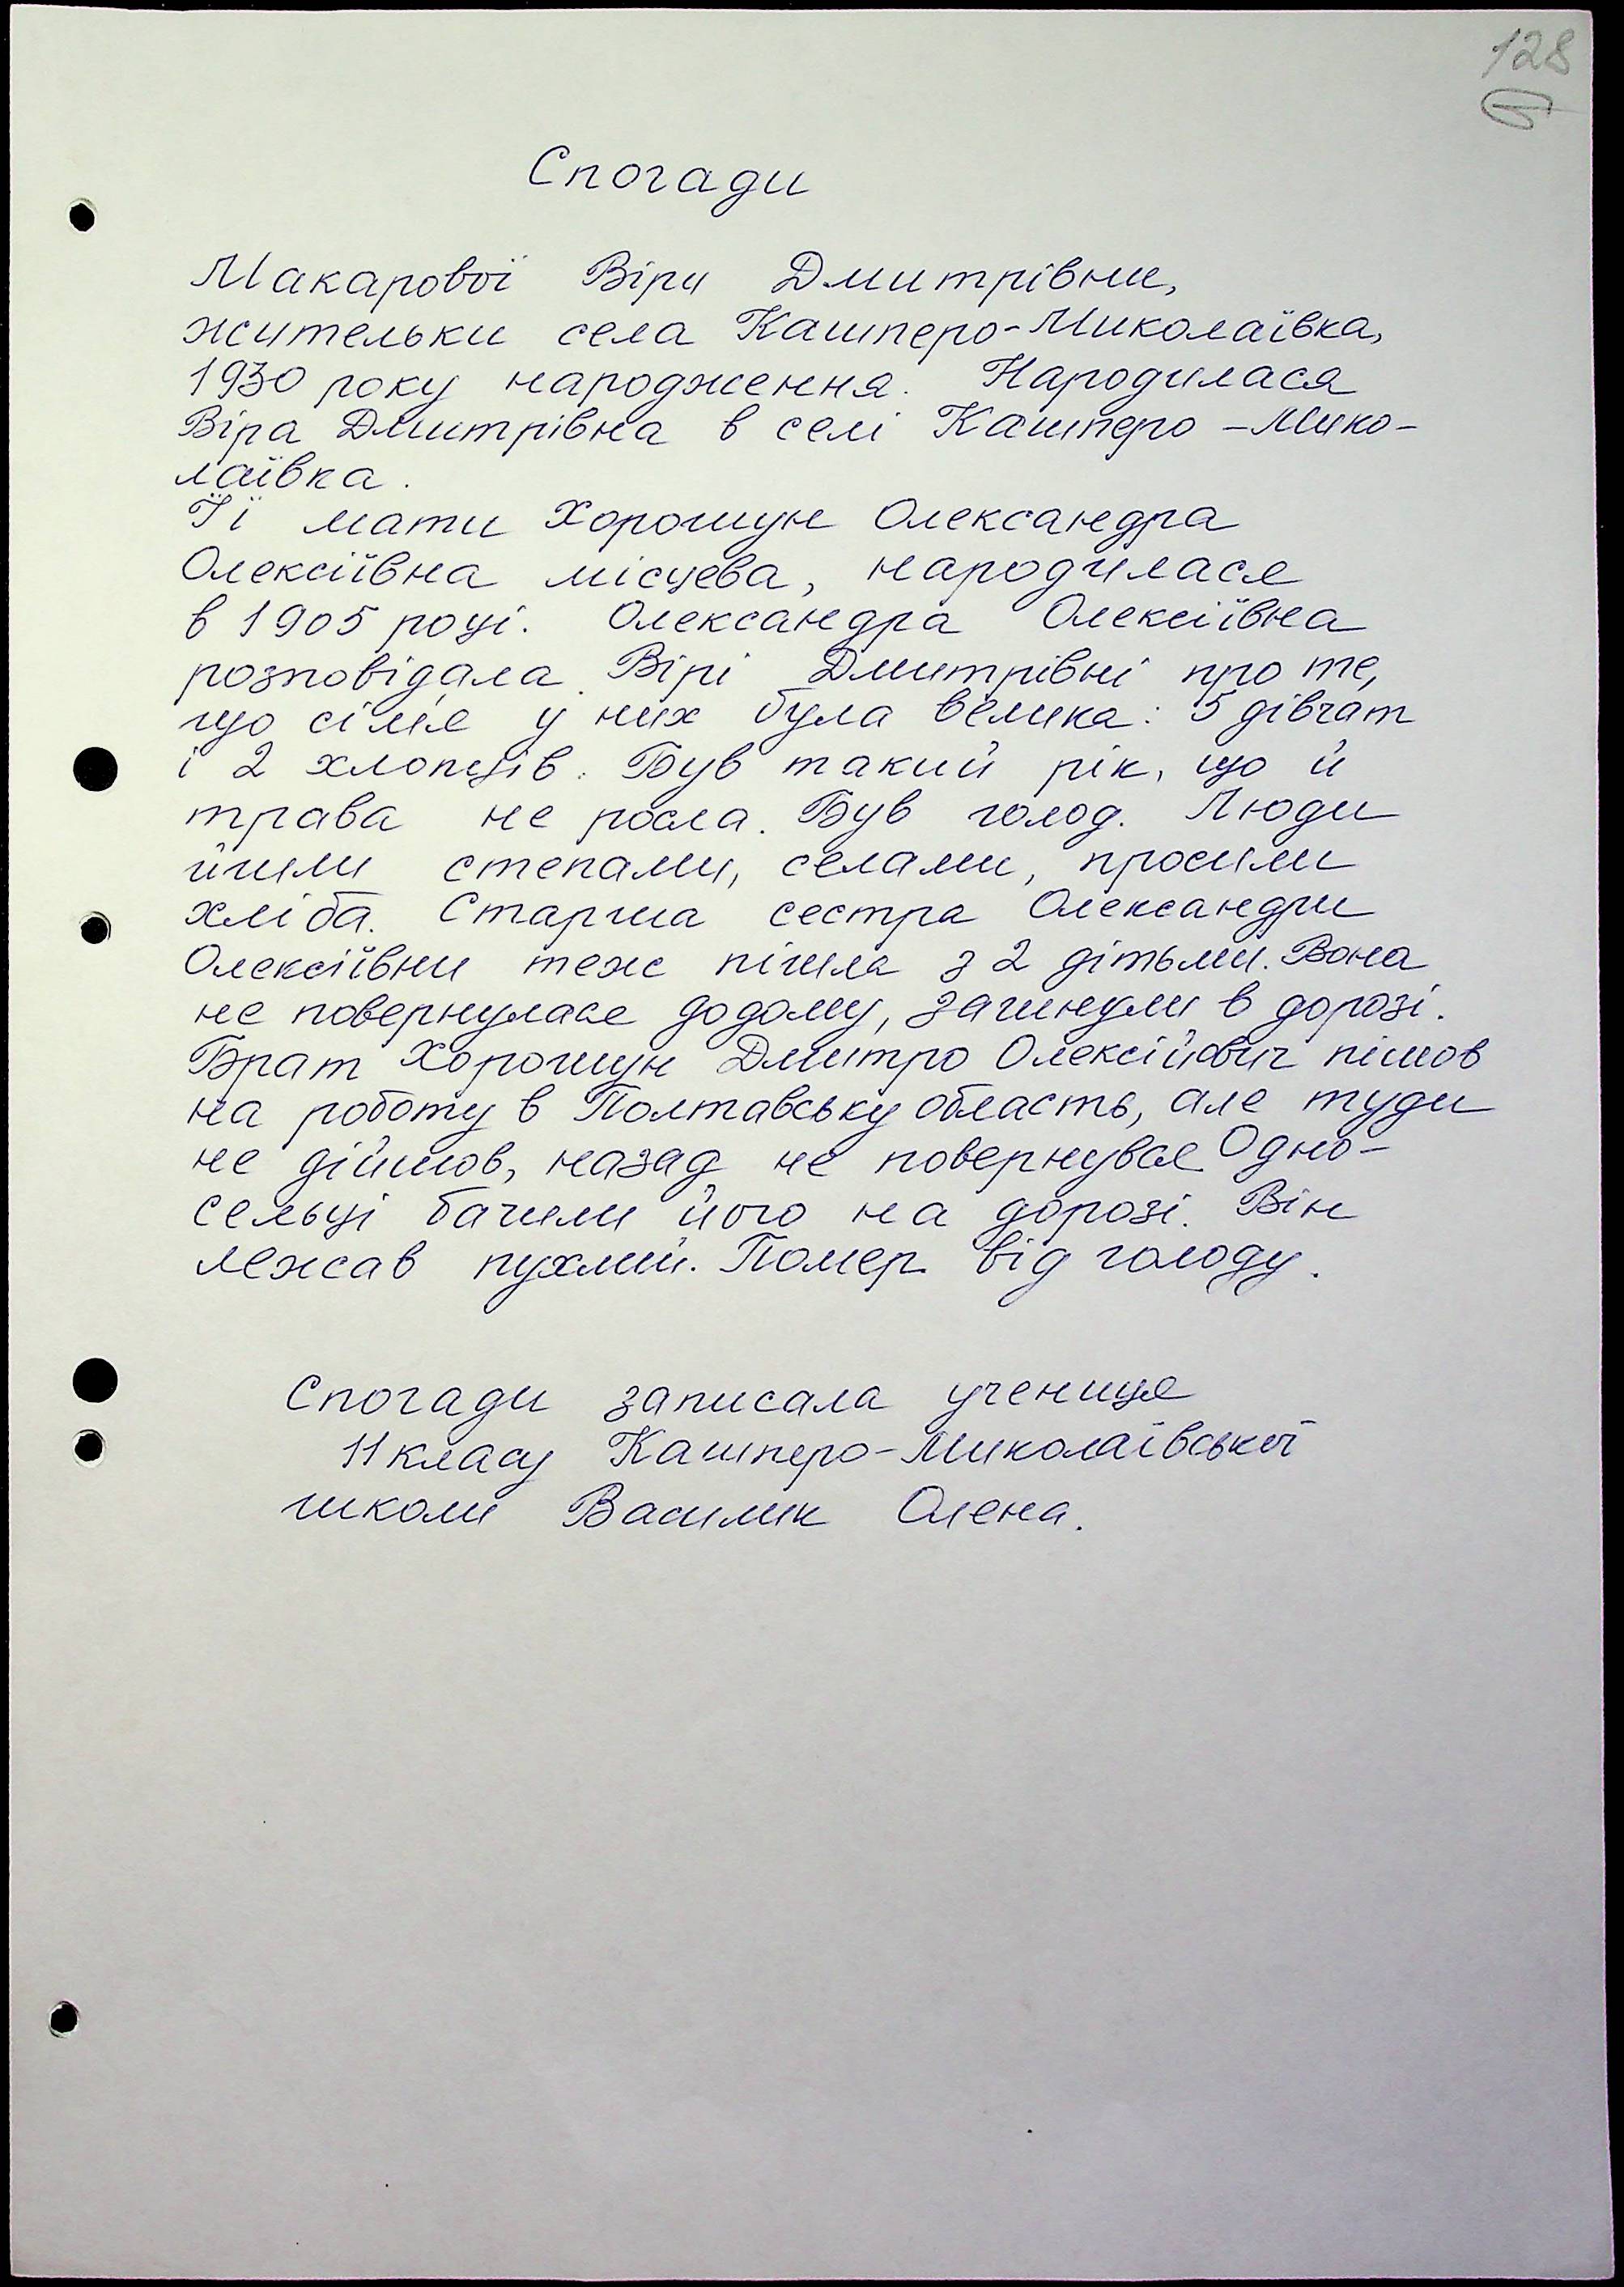 128
Спогади
Макарової Віри Дмитрівни,
жительки села Кашперо-Миколаївка,
1930 року народження. Народилася
Віра Дмитрівна в селі Кашперо-Мико-
лаївка.
Її мати Хорошун Олександра
Олексіївна місцева, народилася
в 1905 році. Олександра Олексіївна
розповідала Вірі Дмитрівні про те,
що сім'я у них була велика: 5 дівчат
і 2 хлопців. Був такий рік, що й
трава не росла. Був голод. Люди
йшли степами, селами, просили
хліба. Старша сестра Олександри
Олексіївни теж пішла з 2 дітьми. Вона
не повернулася додому, загинули в дорозі.
Брат Хорошун Дмитро Олексійович пішов
на роботу в Полтавську область, але туди
не дійшов, назад не повернувся. Одно-
сельці бачили його на дорозі. Він
лежав пухлий. Помер від голоду.
Спогади записала учениця
11 класу Кашперо-Миколаївської
школи Василик Олена.